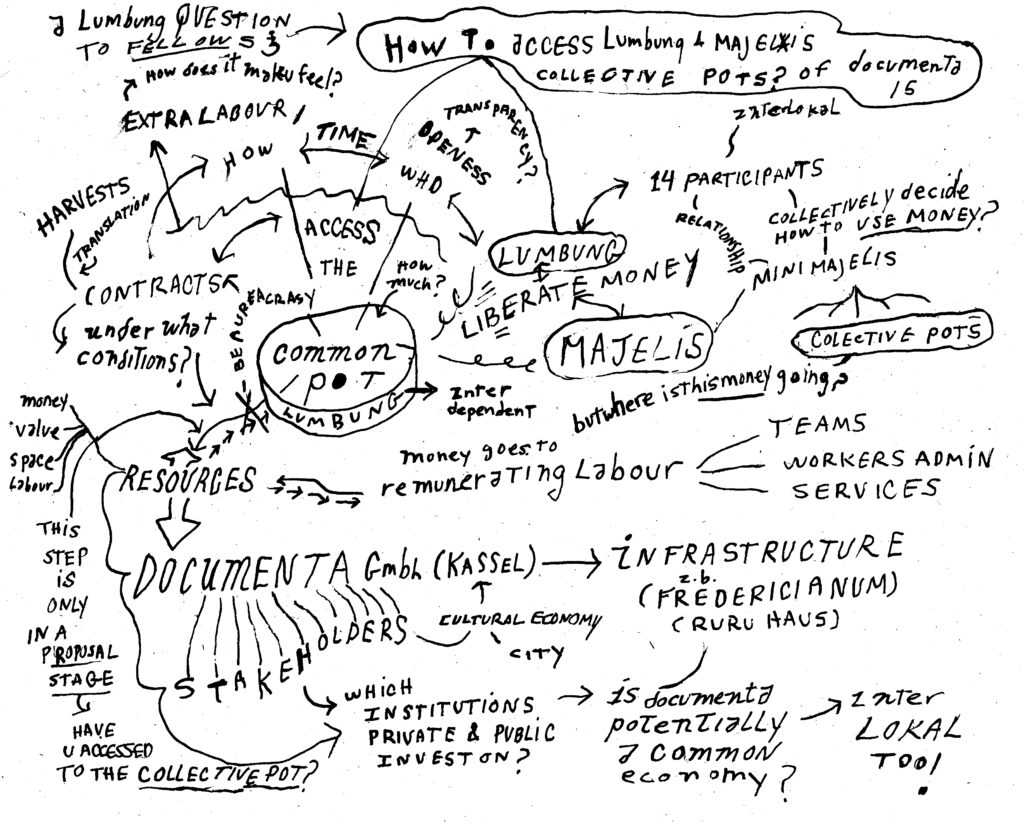 a Lumbung QUESTION
TO FELLOWS
HOW TO ACCESS Lumbung & MAJELIS
COLLECTIVE POTS? of documenta
15
How does it make u feel?
EXTRA LABOUR
HOW
TIME
WHO
OPENESS
TRANSPARENCY?
HARVESTS
TRANSLATION
CONTRACTS
under what
conditions?
ACCESS
THE
HOW
much?
BEAUREACRASY
COMMON
POT
LUMBUNG
Inter
dependent
LUMBUNG
LIBERATE MONEY
MAJELIS
InterLokal
14 PARTICIPANTS
RELATIONSHIP
COLLECTIVELY decide
HOW TO USE MONEY?
MINI MAJELIS
COLECTIVE POTS
but where is this money going?
money
value
space
Labour
RESOURCES
money goes to
remunerating Labour
TEAMS
WORKERS ADMIN
SERVICES
THIS
STEP
IS
ONLY
IN A
PROPOSAL
STAGE
HAVE
U ACCESSED
TO THE COLLECTIVE POT?
DOCUMENTA GmbH (KASSEL)
INFRASTRUCTURE
z.b.
(FREDERICIANUM)
(RURU HAUS)
STAKEHOLDERS
CULTURAL ECONOMY
CITY
WHICH
INSTITUTIONS
PRIVATE & PUBLIC
INVEST ON?
is documenta
potentially
a common
economy?
Inter
LOKAL
TOO!